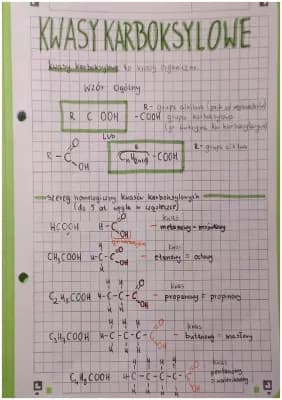 KWASY KARBOKSYLOWE
kwasy karboksylowe to kwasy organiczne
Wzór Ogólny
R C OOH
-COOH grupa karboksylowa
R - grupa alkilowa
LUB
R-C
O
OH
R
-COOH
R - grupa alkilowa
szereg homologiczny kwasów karboksylowych
(do 5 at. węgla w cząsteczce)
HCOOH H-C O OH kwas metanowy = mrówkowy
CH₃COOH H-C-C O OH kwas etanowy = octowy
C₂H₅COOH H-C-C-C O OH kwas propanowy = propionowy
C₃H₇COOH H-C-C-C-C O OH kwas butanowy = masłowy
C₄H₉COOH H-C-C-C-C-C O OH kwas pentanowy = walerianowy